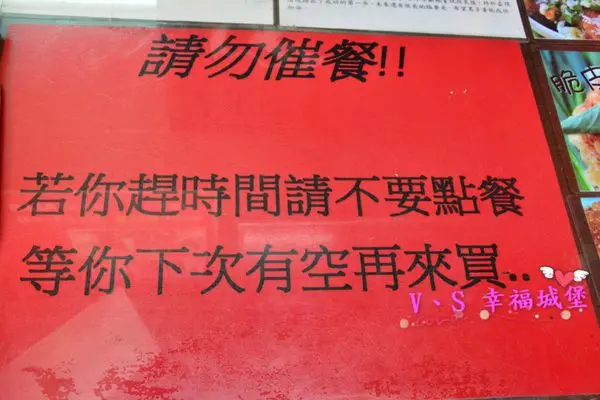 請勿催餐!!
若你趕時間請不要點餐
等你下次有空再來買..
V、S 幸福城堡
脆皮